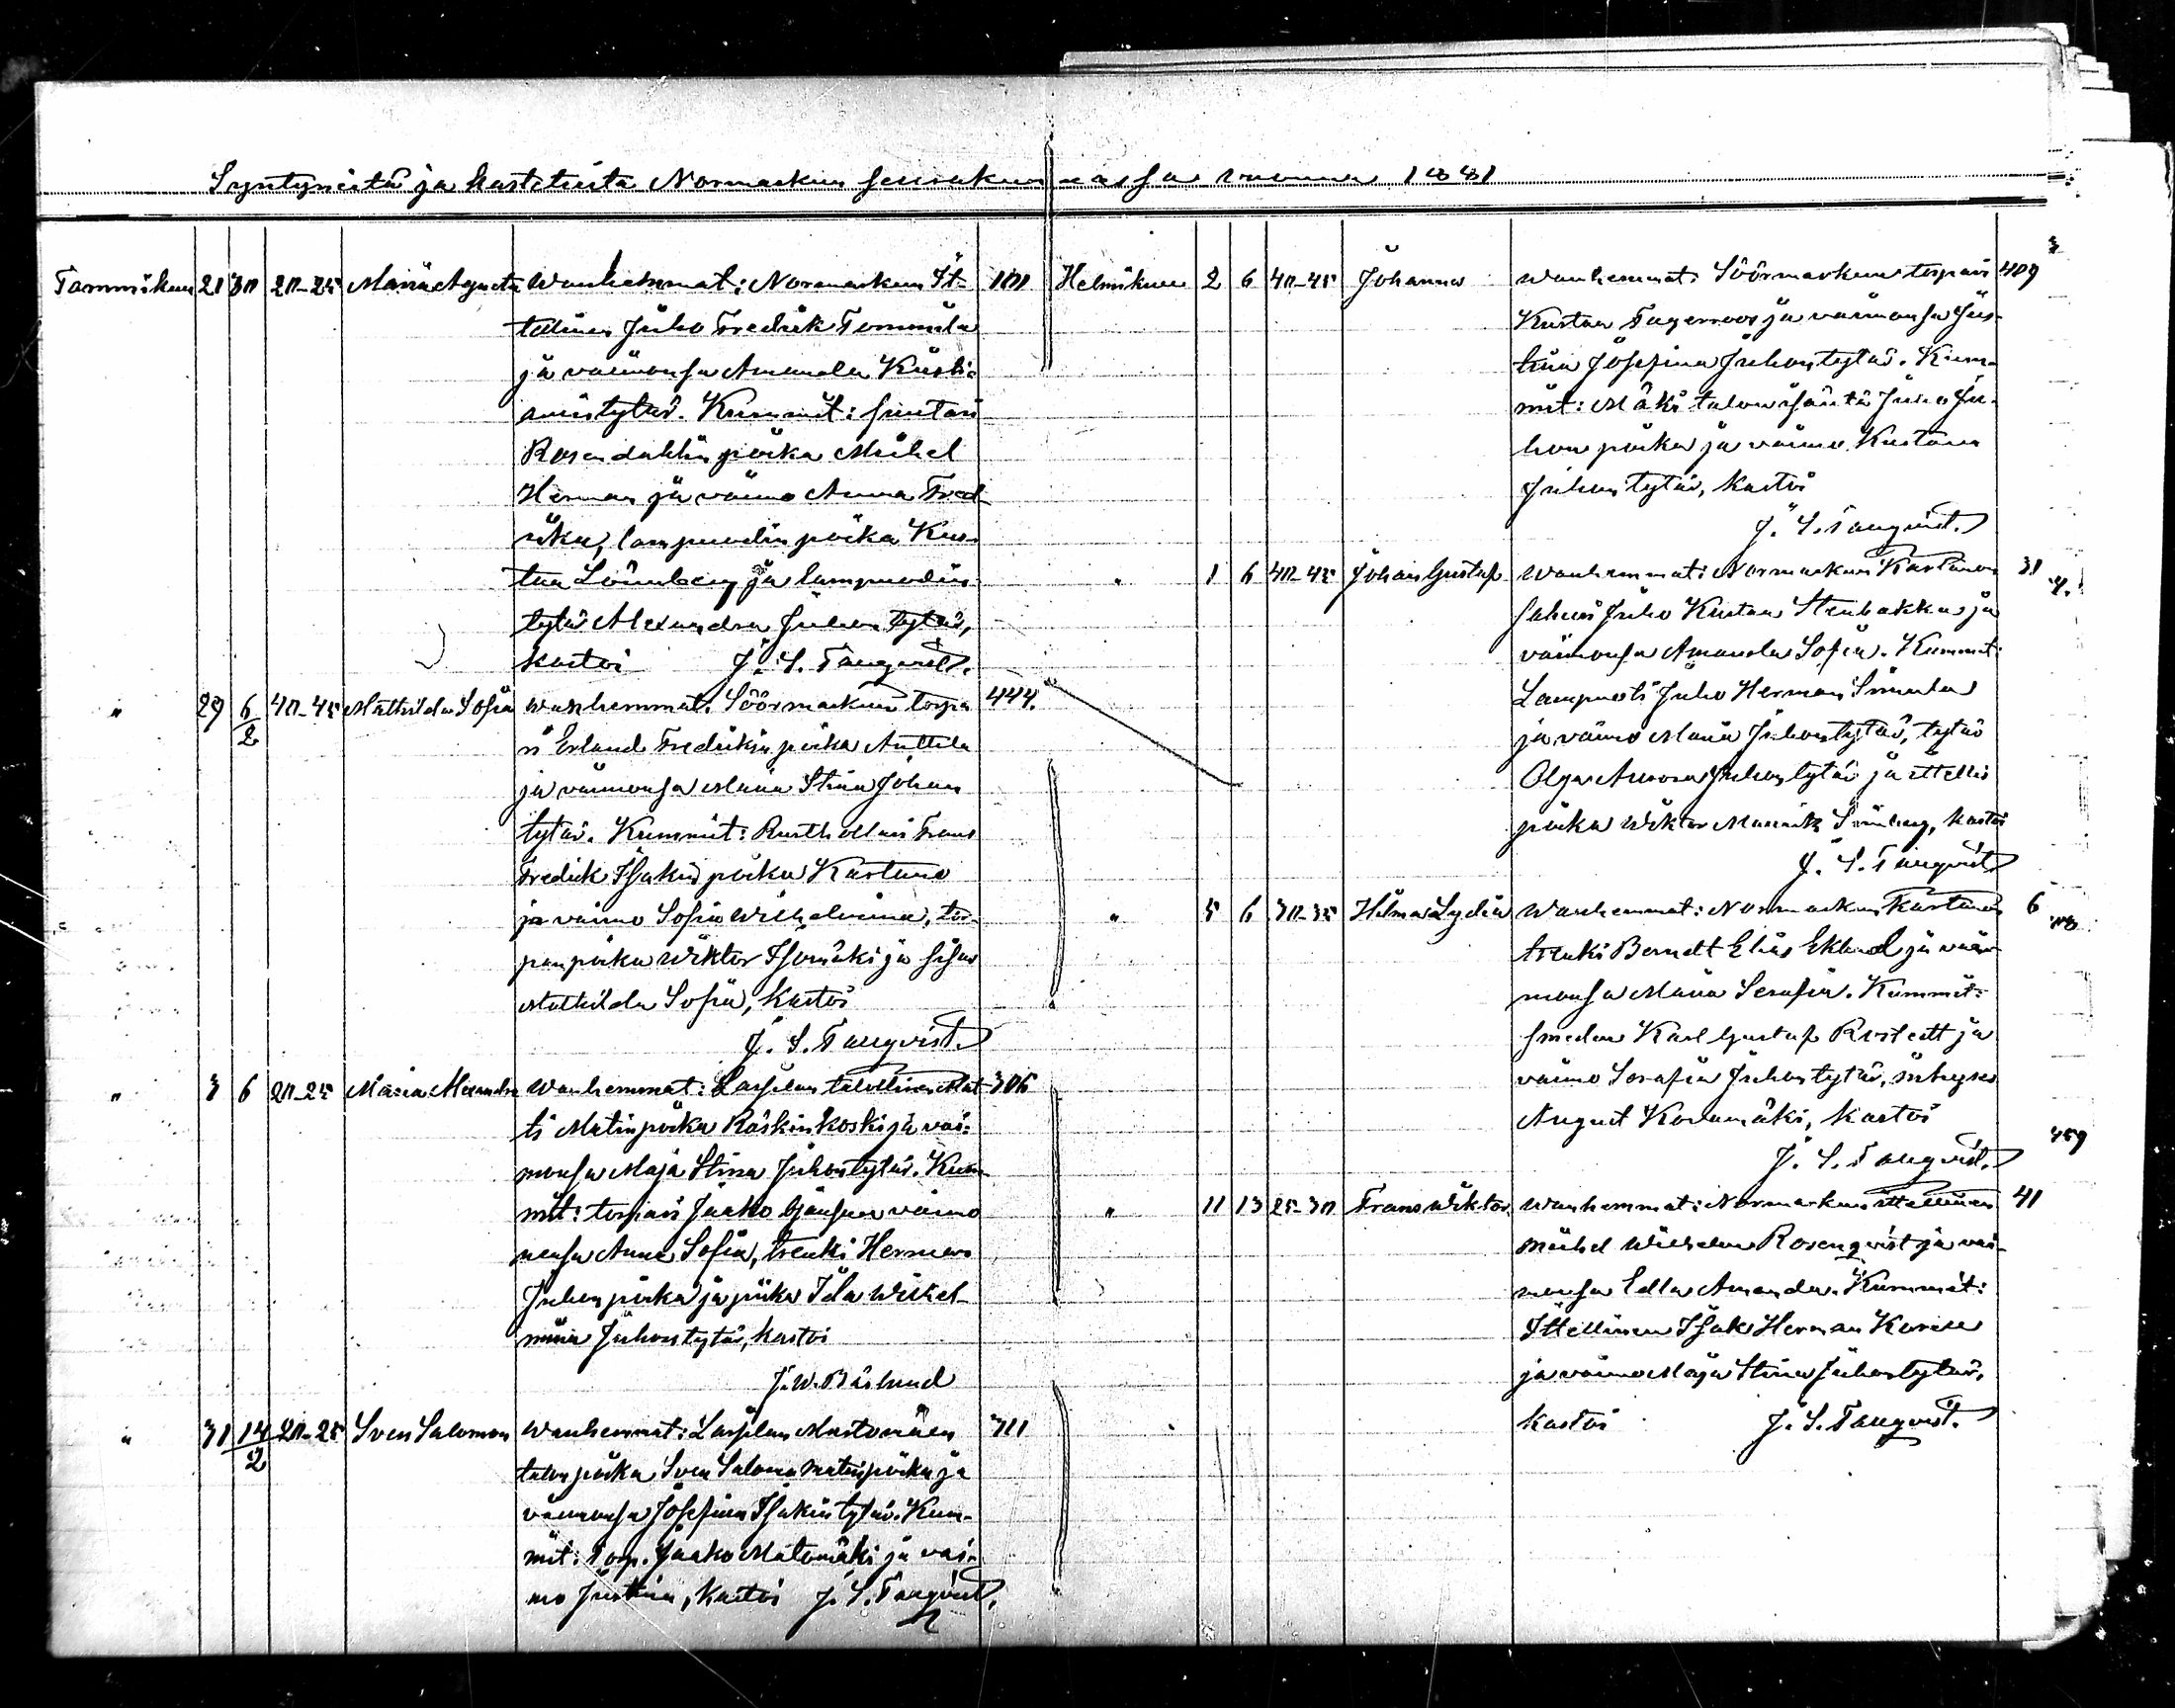 Syntyneitä ja kastetuita Normarkun seurakunnassa vuonna 1881
Tammikuu 21 30 20-25 Maria Agneta Wanhemmat: Normarkun It- 101
tellinen Juho Fredrik Tommila
ja vaimonsa Amanda Kristi-
anintytär. Kummit: suutari
Rosendahlin poika Mihel
Herman ja vaimo Anna Fred-
rika, lampuodin poika Kus-
taa Lönnberg ja lampuodin
tytär Alexandra Juhontytär,
kastoi J. S. Tanqvist.
" 29 6/2 40-45 Mathilda Sofia Wanhemmat: Söörmarkun torpa- 444.
ri Erland Fredrikin poika Anttila
ja vaimonsa Maria Stina Johan
tytär. Kummit: Rusthollari Frans
Fredrik Isakin poika Kartano
ja vaimo Sofia Wilhelmina, tor-
pan poika Wiktor Isomäki ja sisar
Mathilda Sofia, kastoi
J. S. Tanqvist.
" 3 6 20-25 Maria Alexandra Wanhemmat: Lassilan talollinen Mat- 306
ti Matinpoika Räskinkoski ja vai-
monsa Maja Stina Juhontytär. Kum-
mit: torpari Jaako ja vaimo
nensa Anna Sofia, trenki Herman
Juhonpoika ja piika Ida Wilhel-
miina Juhontytär, kastoi
J. W. Bäslund
" 31 14/2 20-25 Sven Salomon Wanhemmat: Lassilan 311
talon poika Sven Salomo Matinpoika ja
vaimonsa Josefina Isakintytär. Kum-
mit: Torp. Jaako Mätömäki ja vai-
mo Justina, kastoi J. S. Tanqvist.
Helmikuu 2 6 40-45 Johanna Wanhemmat: Söörmarkun torpari 409
Kustaa Fagerroos ja vaimonsa Jus-
tiina Josefina Juhontytär. Kum-
mit: Mäki talon isäntä Juho Ju-
hon poika ja vaimo Kustaava
Juhontytär, kastoi
J. S. Tanqvist.
" 1 6 40-45 Johan Gustaf Wanhemmat: Normarkun Kartanon 31
sahuri Juho Kustaa Stenbakka ja
vaimonsa Amanda Sofia. Kummit:
Lampuoti Juho Herman Simula
ja vaimo Maria Juhontytär, tytär
Olga Aurora Juhontytär ja ittellis
poika Wiktor Mauritz, kastoi
J. S. Tanqvist.
" 5 6 30-35 Hilma Lydia Wanhemmat: Normarkun Kartanon 6
trenki Berndt Elias Eklund ja vai-
monsa Maria Serafia. Kummit:
smeden Karl Gustaf Rostedt ja
vaimo Serafia Juhontytär,
August Kodamäki, kastoi
J. S. Tanqvist.
" 11 13 25-30 Frans Wiktor Wanhemmat: Normarkun ittellinen 41
Mihel Wilhelm Rosenqvist ja vai-
monsa Edla Amanda. Kummit:
Ittellinen Isak Herman
ja vaimo Maja Stina Juhontytär,
kastoi J. S. Tanqvist.